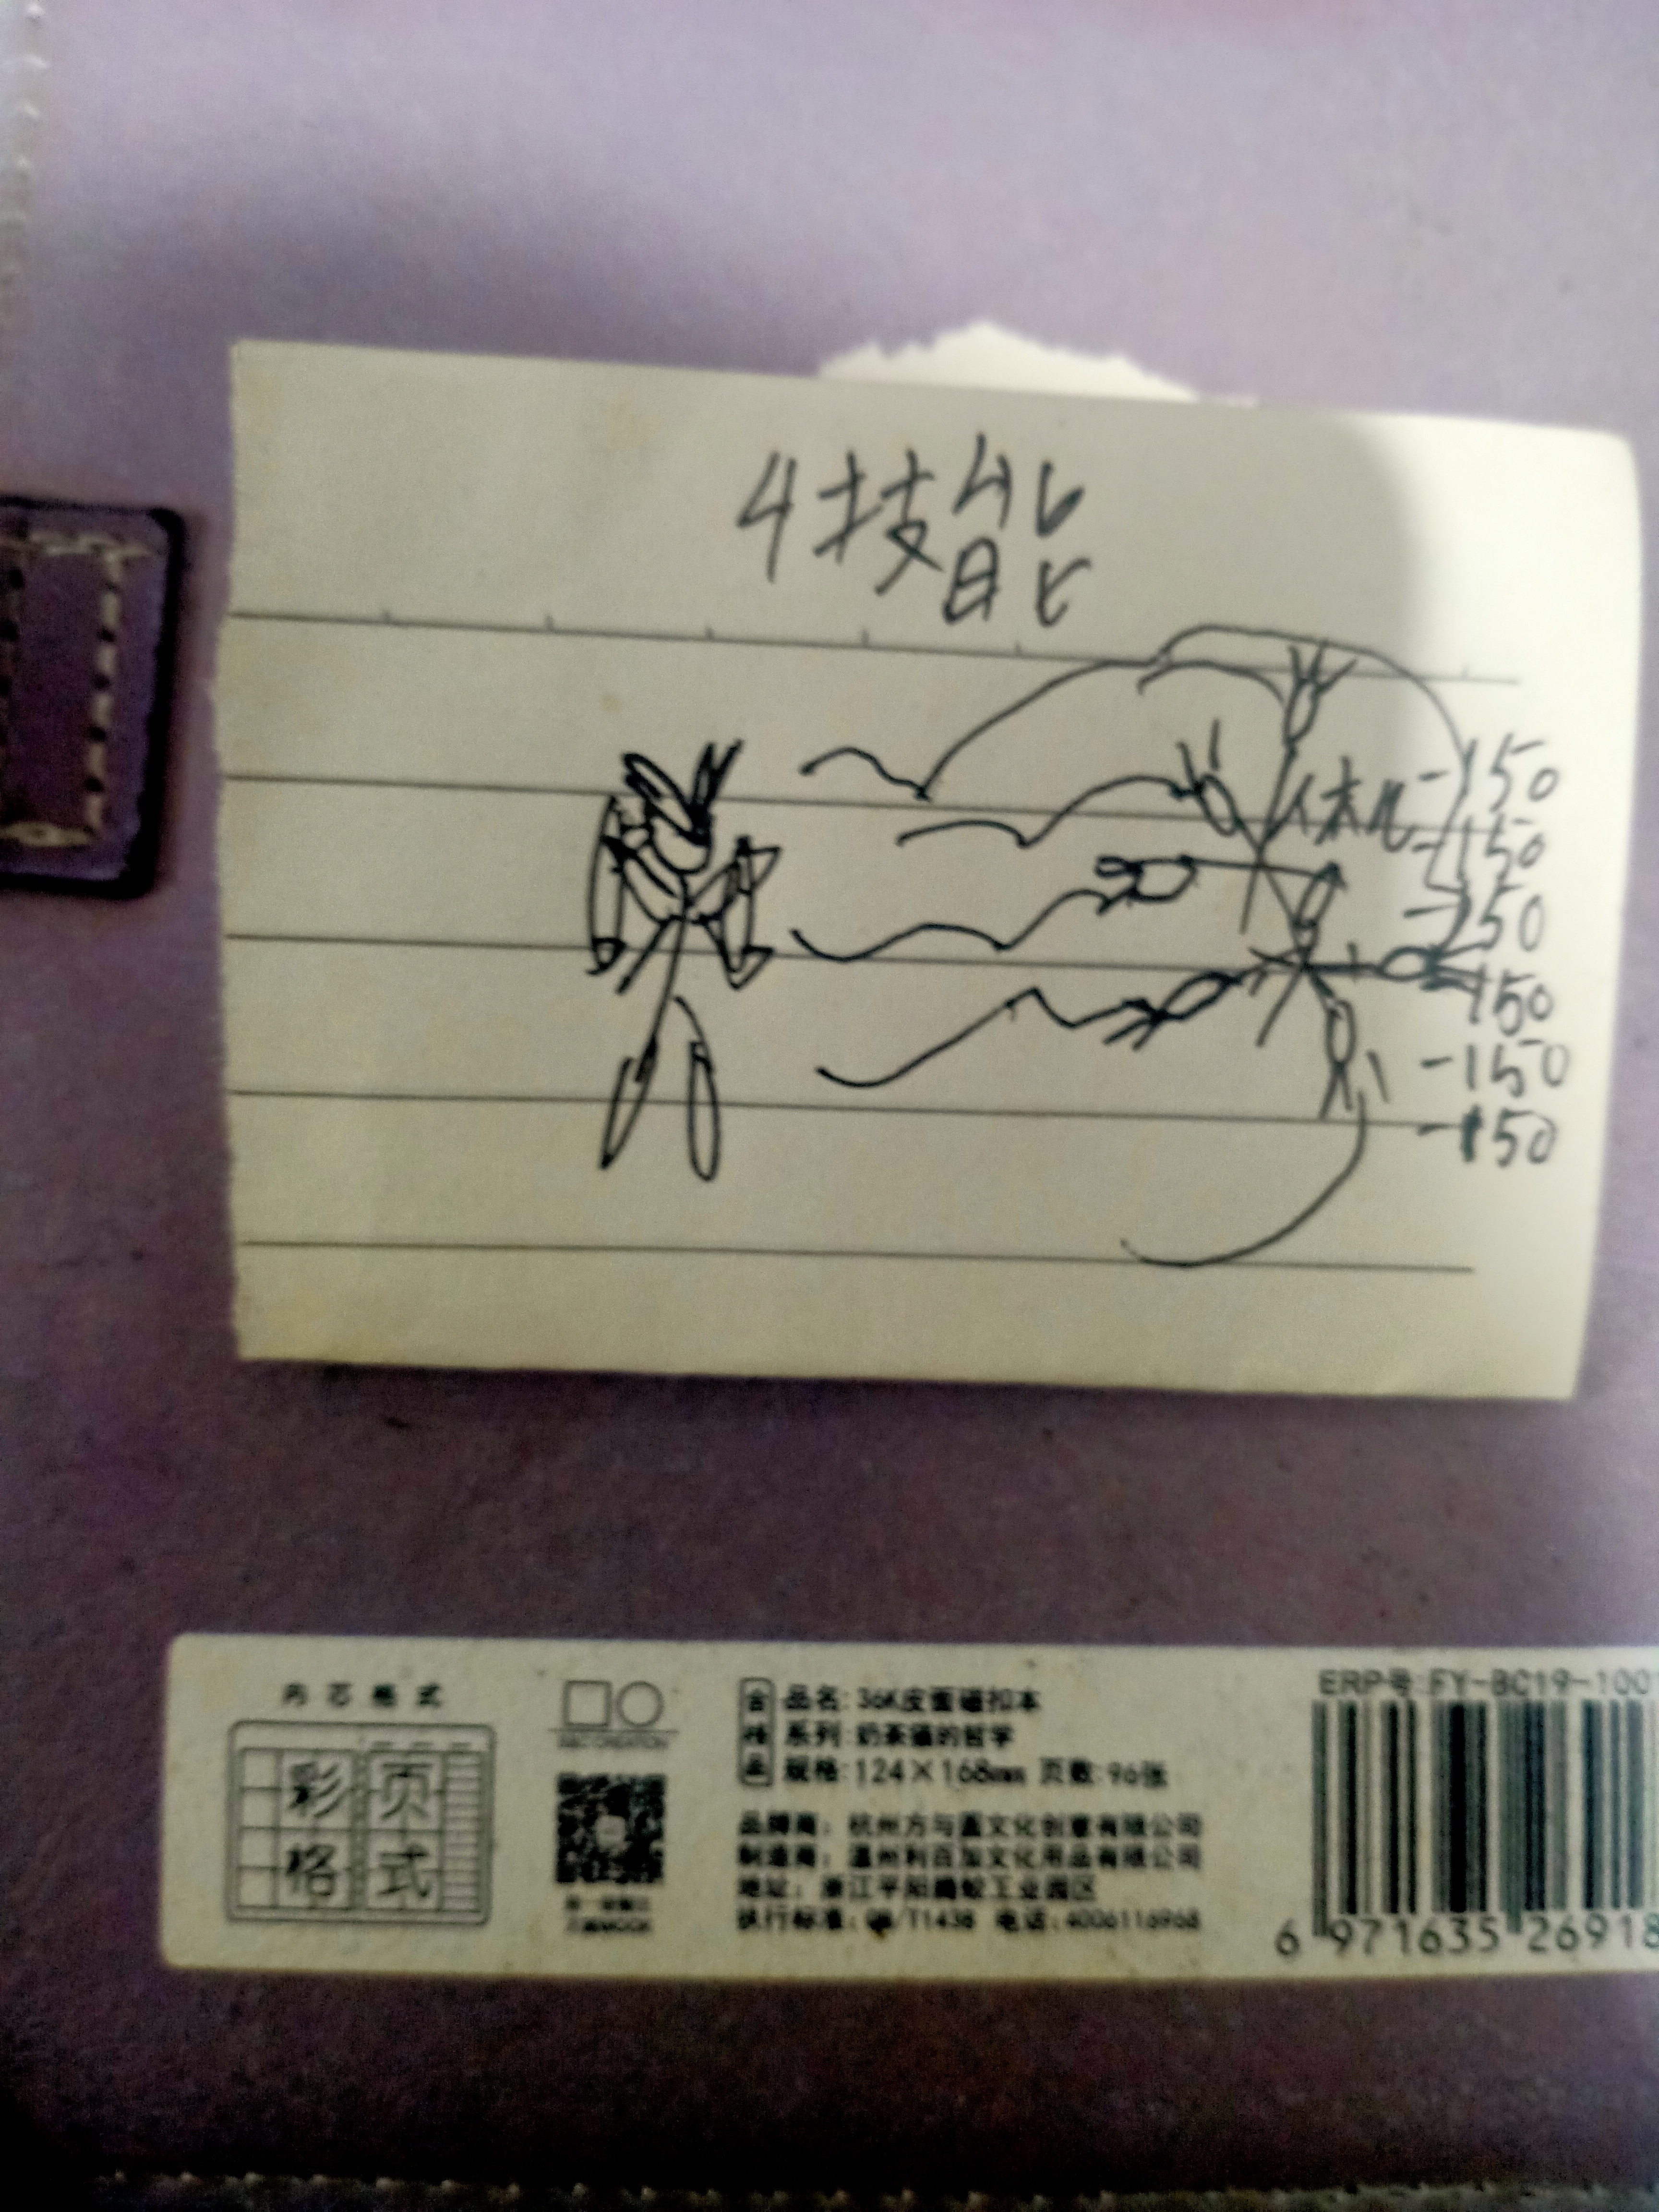 4技能
-150
休几
-150
-250
-150
-150
-150
内芯格式
彩页
格式
合格品
品名:36K皮面磁扣本
系列:奶茶猫的哲学
规格:124×168mm 页数:96张
品牌商:杭州方与圆文化创意有限公司
制造商:温州利百加文化用品有限公司
执行标准:QB/T1438 电话:4006116968
ERP号:FY-BC19-1001
6 971635 26918